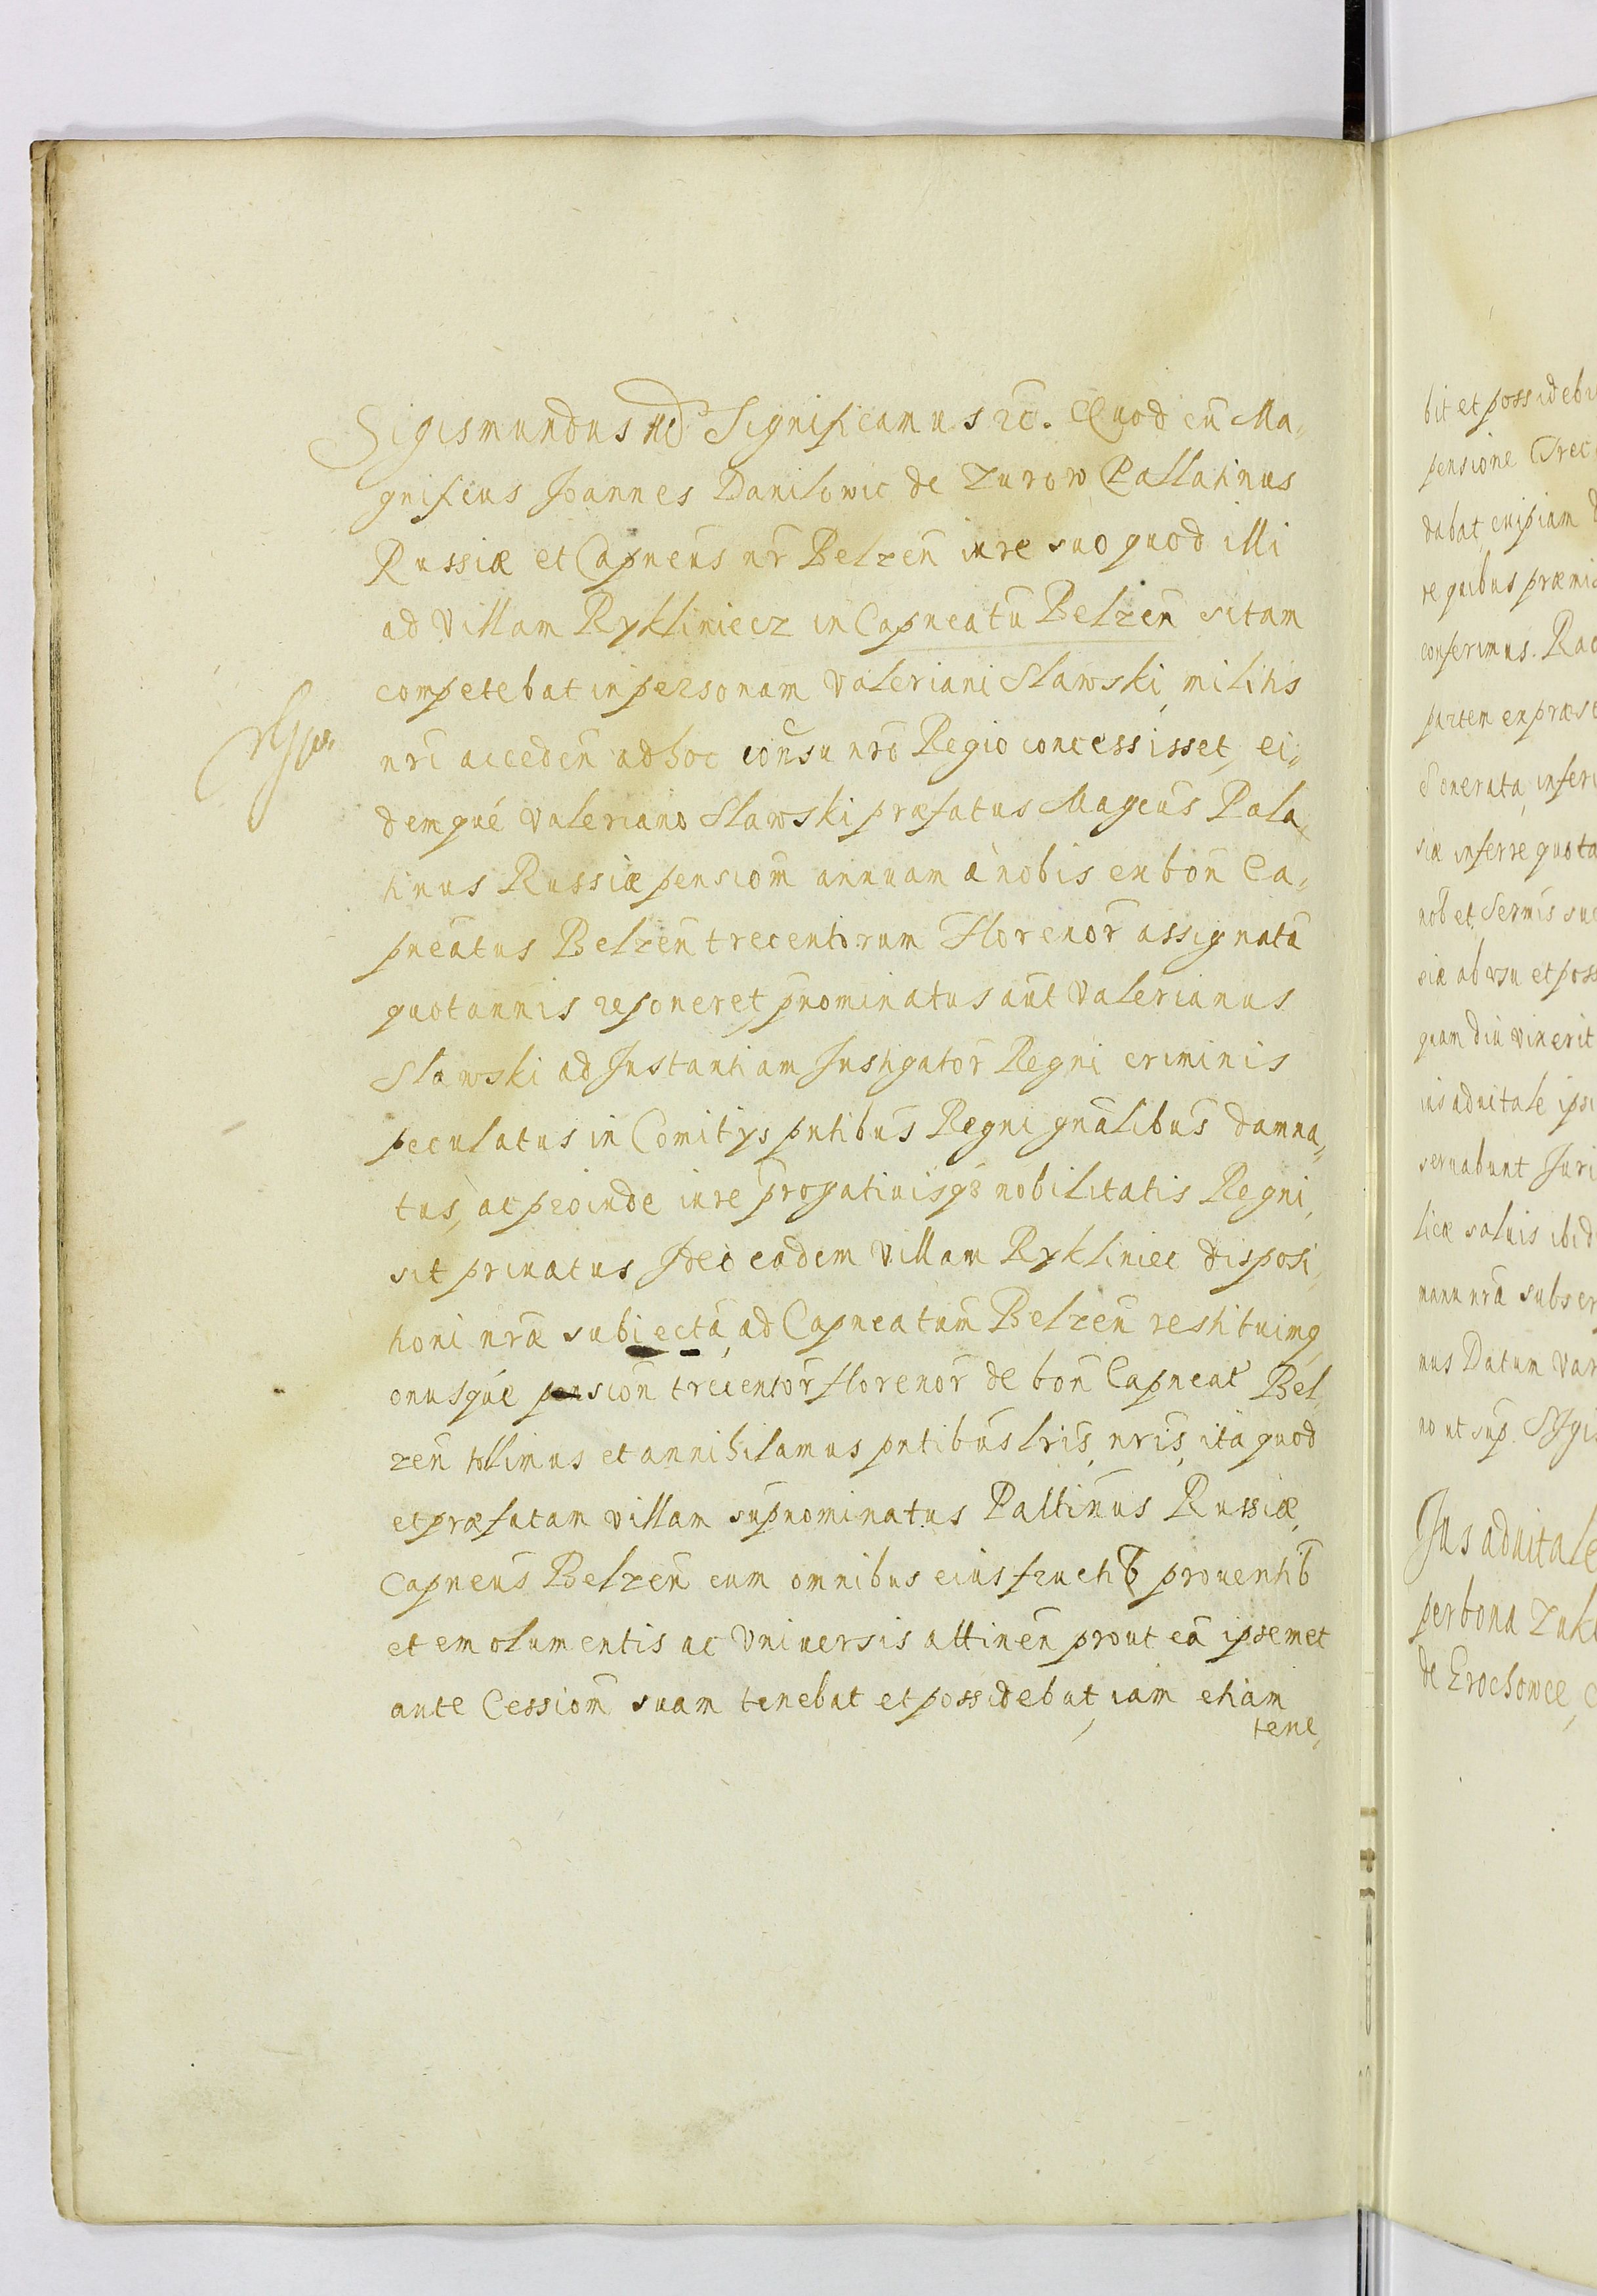 Sigismundus IIIƷ Significamus ꝛc̄. Quod cū Ma„
gnificus Joannes Daniłowic de Zurow Pallatinus
Russiæ et Capneus̄ nr̄ Belzen̄ iure suo quod illi
ad Villam Rykliniecz in Capneatū Belzen̄ sitam
competebat in personam Valeriani Sławski, militis
nrī acceden̄ ad hoc con̄su nrō Regio concessisset, ei„
demqué Valeriano Sławski præfatus Magcus̄ Pala„
tinus Russiæ pensiom̄ annuam à nobis ex bon̄ Ca„
pneātus Belzen̄ trecentorum Florenor̄ assignatā
quotannis reponeret p̄nominatus aūt Valerianus
Sławski ad Instantiam Instigator̄ Regni criminis
peculatus in Comitys pn̄tibus̄ Regni gnālibus̄ damna„
tus, ac proinde iure p̄rogatiuisqꝫ nobilitatis Regni,
sit priuatus Ideò eadem Villam Rykliniec disposi„
tioni nrǣ subiectā, ad Capneatum̄ Belzen̄ restituimꝰ
onusque pension̄ trecentor̄ florenor̄ de bon̄ Capneat̄ Bel„
zen̄ tollimus et annihilamus pn̄tibus̄ lrīs, nrīs, ità quod
et præfatam villam sup̄nominatus Pallinus̄ Russiæ,
Capneus̄ Belzen̄ cum omnibus eius fructib̄ prouentib̄
et emolumentis ac Vniuersis attinen̄ prout eā ipsemet
ante Cessiom̄ suam tenebat et possidebat, iam etiam
tene„
bit et possidebi
pensione Trec
dabat
re quibus præmi
conferimus. Rac
partem
generata, inferr
siæ inferre quota
nob̄ et Sermīs suc
ab vsu et poss
quam diù vixerit
ius aduitale ipsi
seruabunt Juri
licæ saluis ibid
manu nrā subscr
nus Datum Var
no ut sup̄. Sigis
Jus aduitale
per bona Zuk
de Erochowce, C